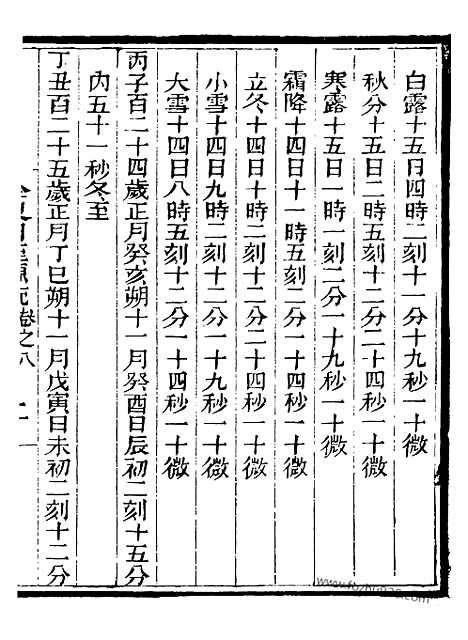 白露十五日四時二刻十一分十九秒一十微
秋分十五日二時五刻十二分一十四秒一十微
寒露十五日一時一刻二分一十九秒一十微
霜降十四日十一時五刻二分二十四秒一十微
立冬十四日十時二刻十二分二十四秒一十微
小雪十四日九時二刻十二分二十九秒一十微
大雪十四日八時五刻十二分一十四秒一十微
丙子百二十四歲正月癸亥朔十一月癸酉日辰初二刻十五分
內五十一秒冬至
丁丑百二十五歲正月丁巳朔十一月戊寅日未初二刻十二分
卷之八